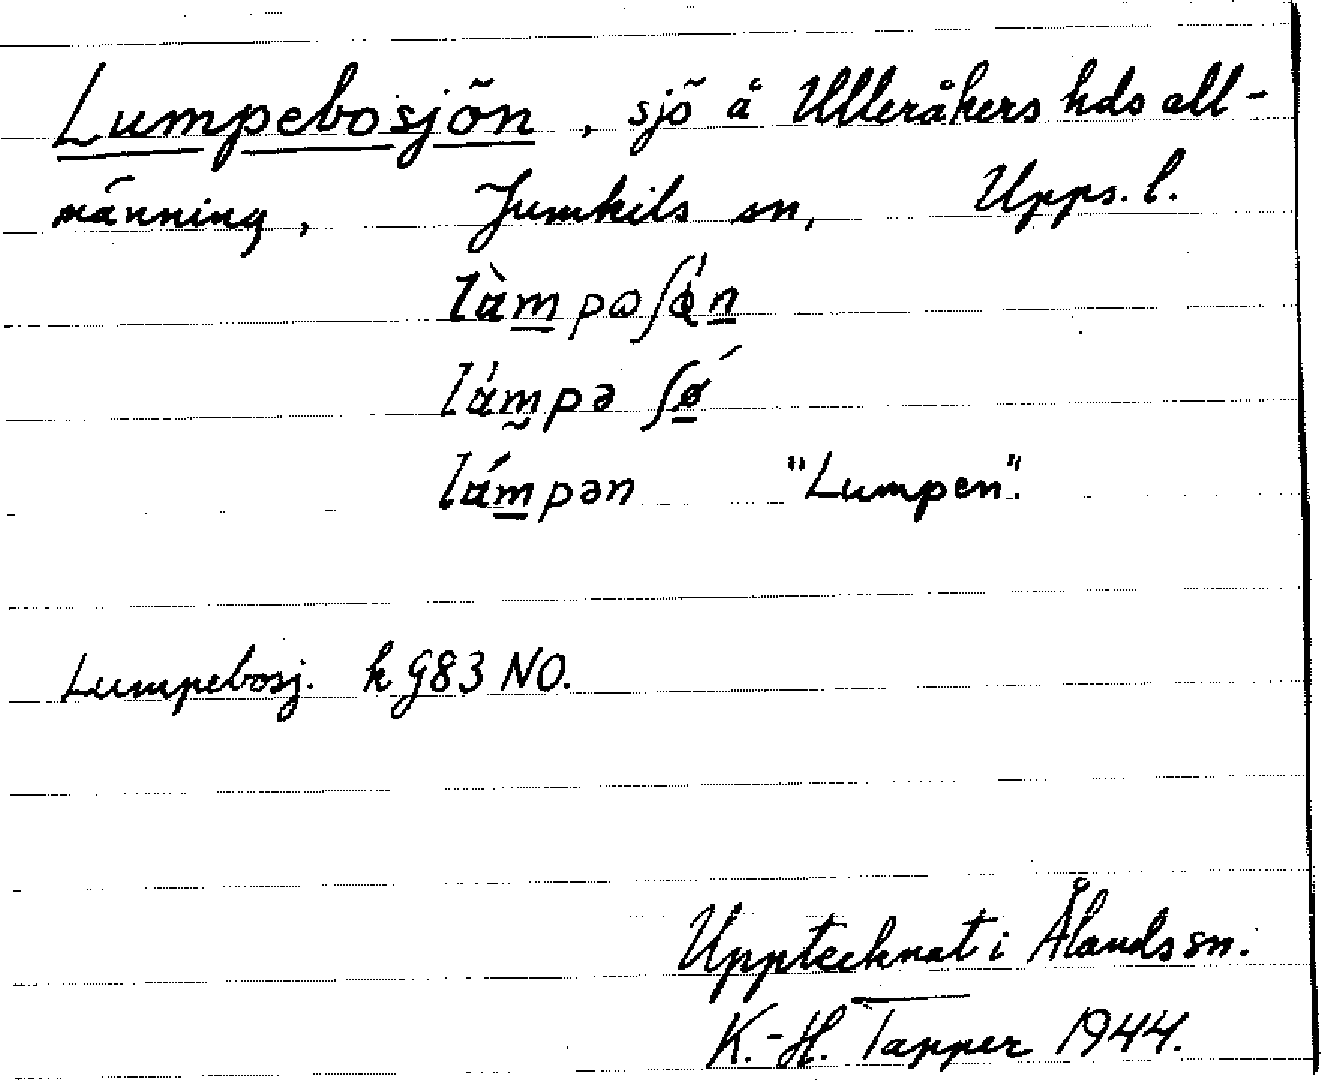 Lumpebosjön, sjö å Ulleråkers hds all-
männing, Jumkils sn, Upps. l.
làmpəʃǿn
lámpə ʃǿ
lámpən "Lumpen".
Lumpebosj. k G83 NO.
Upptecknat i Ålands sn.
K.-H. Tapper 1944.